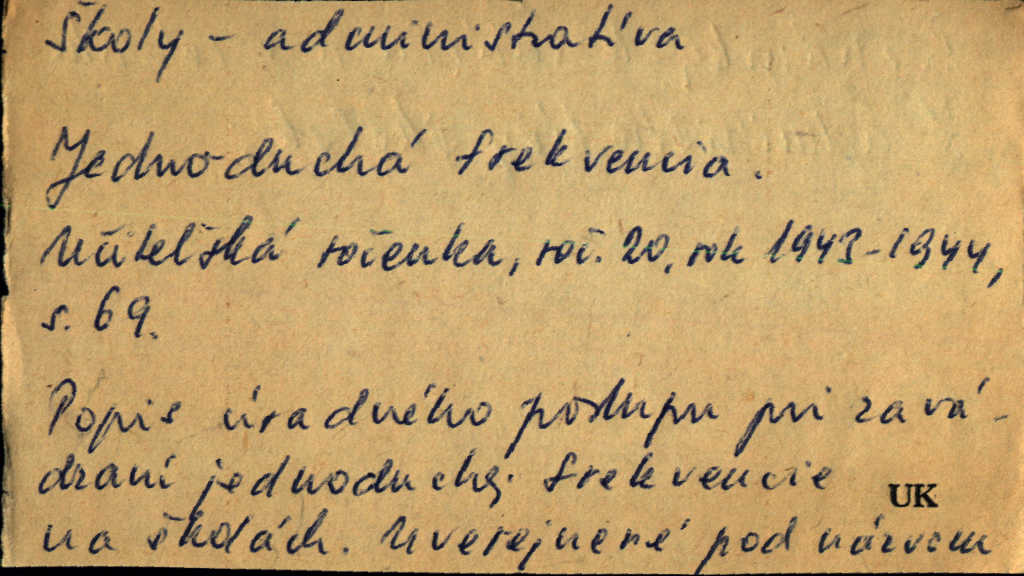 Školy - administratíva
Jednoduchá frekvencia.
Učiteľská ročenka, roč. 20, rok 1943-1944,
s. 69.
Popis úradného postupu pri zavá-
dzaní jednoduchej frekvencie
UK
na školách. Uverejnené pod názvom